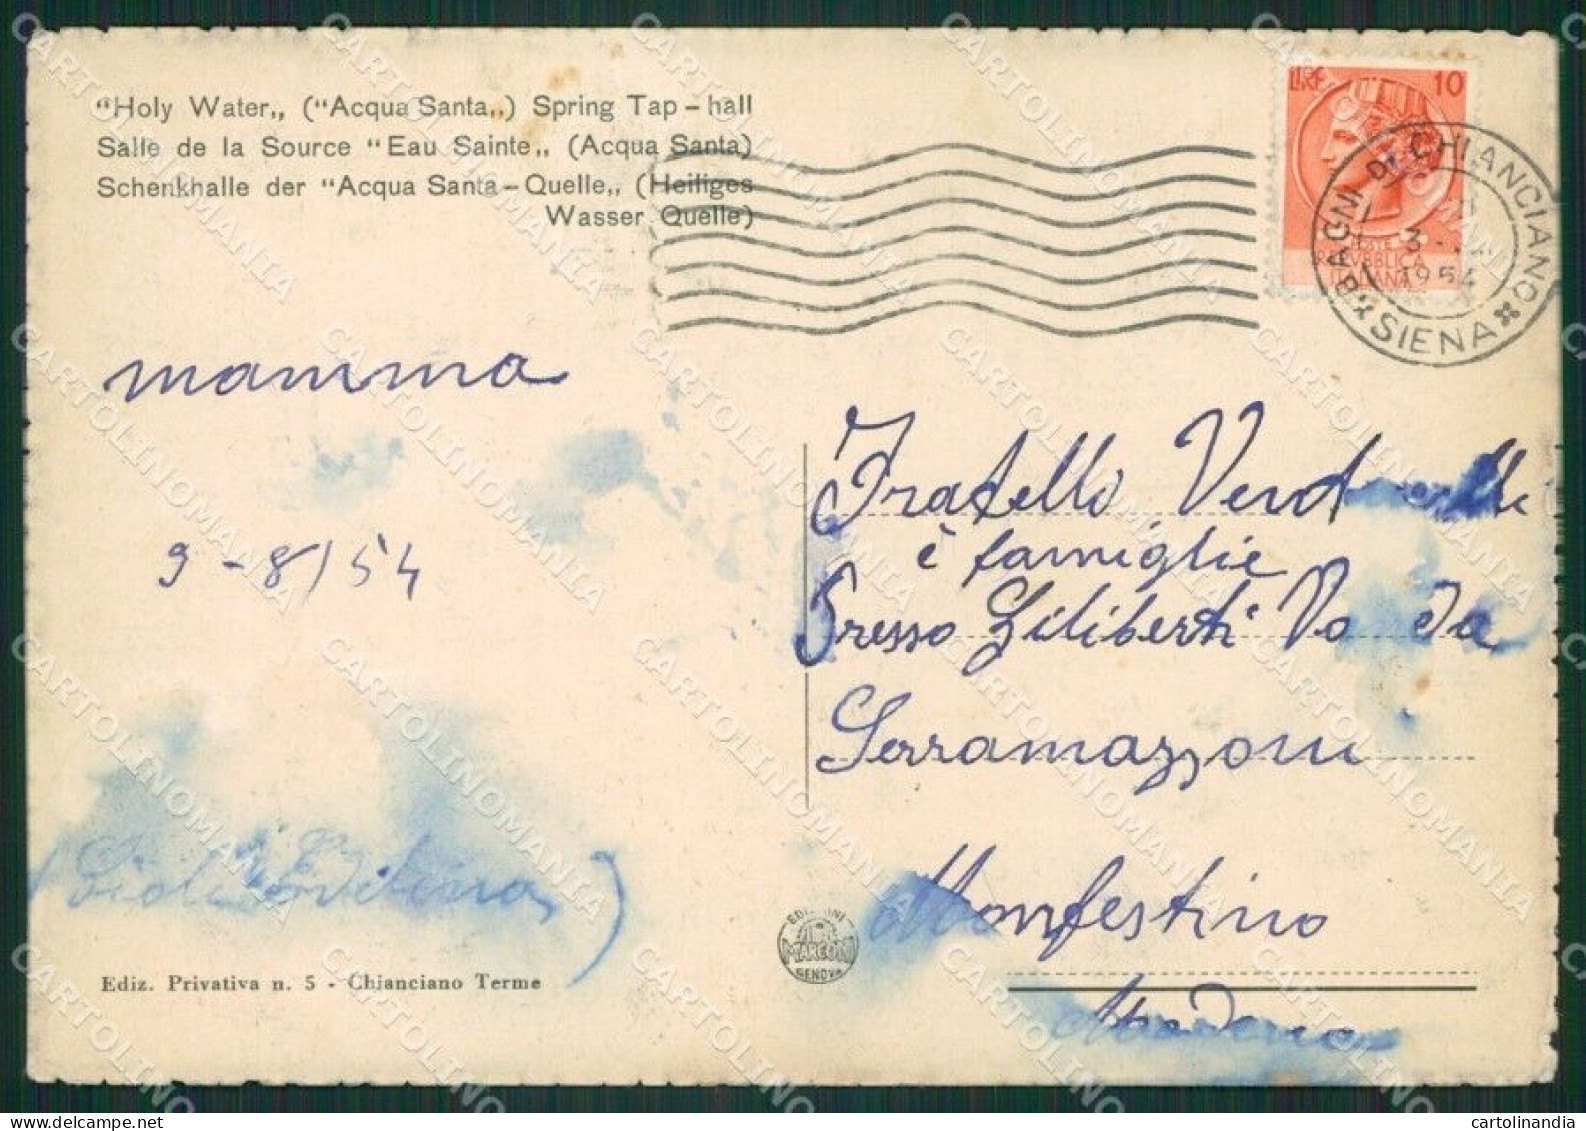 "Holy Water„ ("Acqua Santa„) Spring Tap – hall
Salle de la Source "Eau Sainte„ (Acqua Santa)
Schenkhalle der "Acqua Santa – Quelle„ (Heiliges
Wasser Quelle)
LIRE 10
POSTE
REPVBBLICA
ITALIANA
BAGNI DI CHIANCIANO
1954
SIENA
mamma
9-8/54
Fratelli
è famiglie
Presso Giliberti Va Da
Serramazzoni
Monfestino
Modena
EDIZIONI
MARCONI
GENOVA
Ediz. Privativa n. 5 - Chianciano Terme
CARTOLINANDIA
CARTOLINOMANIA
cartolinandia